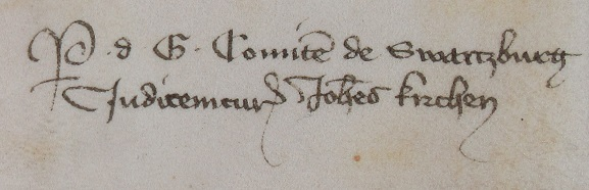 P · d · G · Comitē de Swartzburg
Judicem cur̄ Joh̄es Kirchen